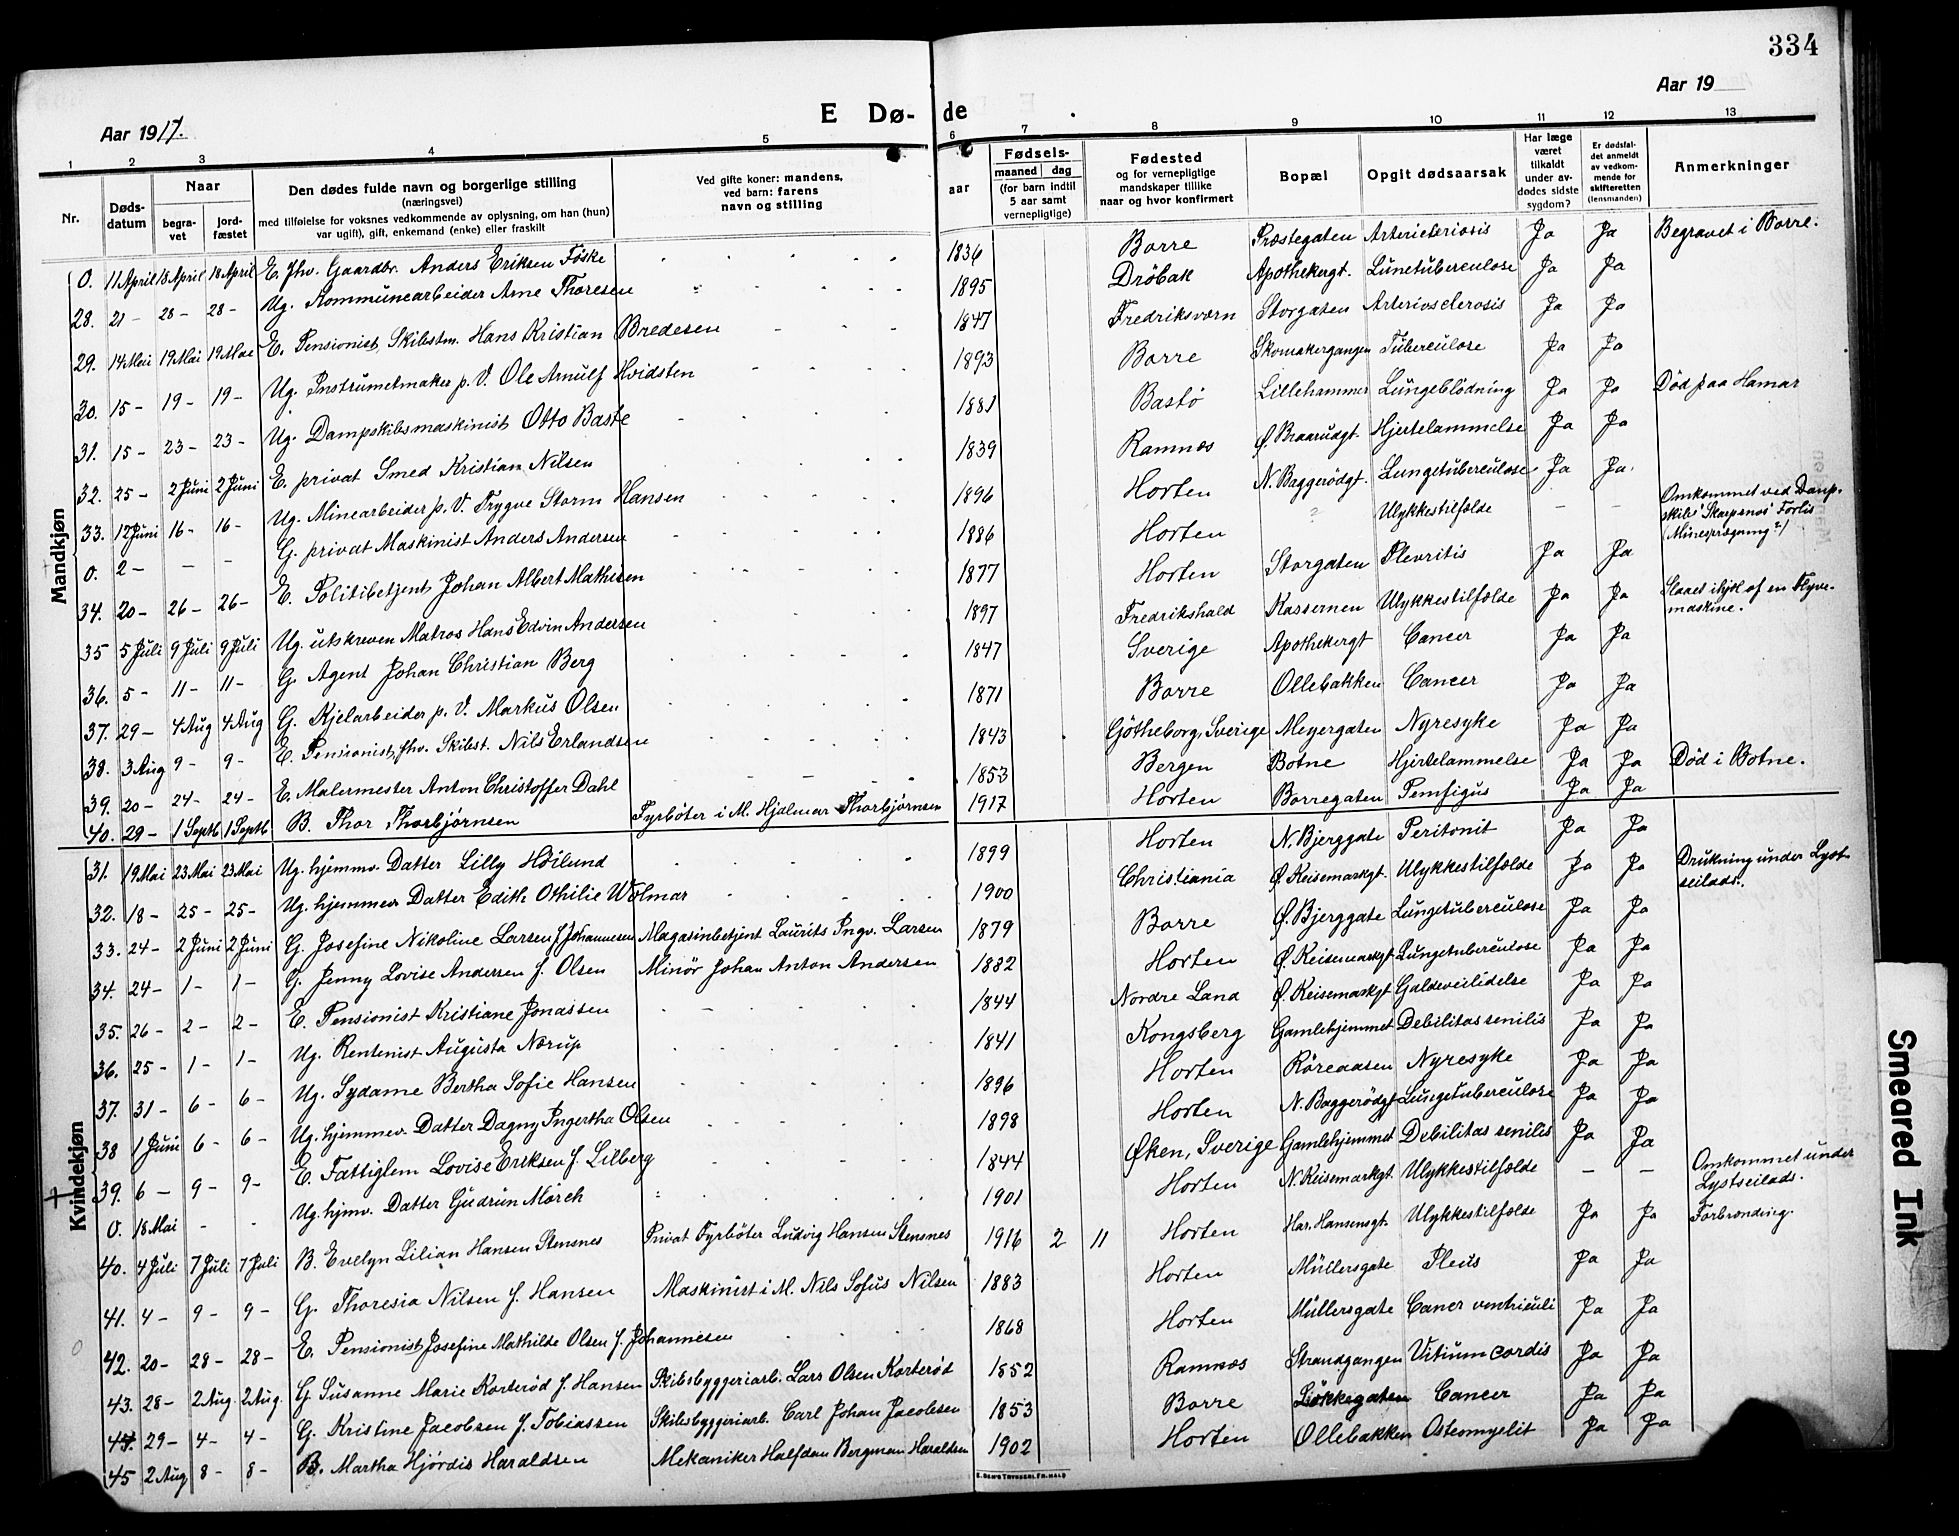 334
Aar 1917. E Dø- de Aar 19
1 2 3 4 5 6 7 8 9 10 11 12 13
Nr. Døds-datum Naar begra-vet jord-fæstet Den dødes fulde navn og borgerlige stilling (næringsvei) med tilføielse for voksnes vedkommende av oplysning, om han (hun) var ugift), gift, enkemand (enke) eller fraskilt Ved gifte koner: mandens, ved barn: farens navn og stilling Fødsels- aar maaned dag (for barn indtil 5 aar samt vernepligtige) Fødested og for vernepligtige mandskaper tillike naar og hvor konfirmert Bopæl Opgit dødsaarsak Har læge været tilkaldt under av-dødes sidste sygdom? Er dødsfal-det anmeldt av vedkom-mende for skifteretten (lensmanden) Anmerkninger
Mandkjøn
0. 11 April 18 April 18 April E. fhv. Gaardbr. Anders Eriksen Föske 1836 Borre Præstegaten Arterieteriosis Ja Ja Begravet i Borre.
28. 21 - 28 - 28 - Ug. Kommunearbeider Arne Thoresen 1895 Dröbak Apothekergt. Lunetuberculose Ja Ja
29. 14 Mai 19 Mai 19 Mai E. Pensionist, Skibstm. Hans Kristian Bredesen 1847 Fredriksværn Storgaten Arteriosclerosis Ja Ja
30. 15 - 19 - 19 - Ug. Instrumetmaker p. V. Ole Arnulf Hvidsten 1893 Borre Skomakergangen Tuberculose Ja Ja
31. 15 - 23 - 23 - Ug. Dampskibsmaskinist Otto Bastø 1881 Bastö Lillehammer Lungeblödning Ja Ja Död paa Hamar
32. 25 - 2 Juni 2 Juni E. privat Smed Kristian Nilsen 1839 Ramnæs Ø. Braarudgt. Hjertelammelse Ja Ja
33. 12 Juni 16 - 16 - Ug. Minearbeider p. V. Trygve Storm Hansen 1896 Horten N. Baggerödgt. Lungetuberculose Ja Ja.
0. 2 - - - G. privat Maskinist Anders Andersen 1886 Horten ? Ulykkestilfælde - - Omkommet ved Damp-skibs "Skarpsnos" Forlis (Minesprægning?)
34. 20 - 26 - 26 - E. Politibetjent Johan Albert Mathisen 1877 Horten Storgaten Plevritis Ja Ja
35 5 Juli 9 Juli 9 Juli Ug. utskreven Matros Hans Edvin Andersen 1897 Fredrikshald Kassernen Ulykkestilfælde Ja Ja Slaaet ihjel af en Flyve-maskine.
36. 5 - 11 - 11 - G. Agent Johan Christian Berg 1847 Sverige Apothekergt Cancer Ja Ja
37. 29 - 4 Aug 4 Aug G. Kjelarbeider p. V. Markus Olsen 1871 Borre Ollebakken Cancer Ja Ja
38. 3 Aug 9 - 9 - E. Pensionist, fhv. Skibst. Nils Erlandsen 1843 Götheborg, Sverige Meyergaten Nyresyke Ja Ja
39. 20 - 24 - 24 - E. Malermester Anton Christoffer Dahl 1853 Bergen Botne Hjertelammelse Ja Ja Död i Botne.
40. 29 - 1 Septb 1 Septb B. Thor Thorbjörnsen Fyrböter i M. Hjalmar Thorbjörnsen 1917 Horten Borregaten Pemfigus Ja Ja
Kvindekjøn
31. 19 Mai 23 Mai 23 Mai Ug. hjemmv. Datter Lilly Höilund 1899 Horten N. Bjerggate Peritonit Ja Ja
32. 18 - 25 - 25 - Ug. hjemmev Datter Edith Othilie Wolmar 1900 Christiania Ø. Keisemarkgt. Ulykkestilfælde Ja Ja Drukning under Lyst-seilads.
33. 24 - 2 Juni 2 Juni G. Josefine Nikoline Larsen f. Johannesen Magasinbetjent Laurits Ingv. Larsen 1879 Borre Ø. Bjerggate Lungetuberculose Ja Ja
34. 24 - 1 - 1 - G. Jenny Lovise Andersen f. Olsen Minör Johan Anton Andersen 1882 Horten Ø. Keisemarkgt Lungetuberculose Ja Ja
35. 26 - 2 - 2 - E. Pensionist Kristiane Jonassen 1844 Nordre Land Ø. Keisemarkgt Galdeveilidelse Ja Ja
36. 25 - 1 - 1 - Ug. Rentenist Augusta Nærup 1841 Kongsberg Gamlehjemmet Debilitas senilis Ja Ja
37. 31 - 6 - 6 - Ug. Sydame Bertha Sofie Hansen 1896 Horten Röreaasen Nyresyke Ja Ja
38 1 Juni 6 - 6 - Ug. hjemmev. Datter Dagny Ingertha Olsen 1898 Horten N. Baggerödgt Lungetuberculose Ja Ja
39. 6 - 9 - 9 - E. Fattiglem Lovise Eriksen f. Lilberg 1844 Øken, Sverige Gamlehjemmet Debilitas senilis Ja Ja
0. 18 Mai - - Ug. hjmv. Datter Gudrun Mörch 1901 Horten N. Keisemarkgt. Ulykkestilfælde - - Omkommet under Lystseilads.
40. 4 Juli 7 Juli 7 Juli B. Evelyn Lilian Hansen Stensnes Privat Fyrböter Ludvig Hansen Stensnes 1916 2 11 Horten Har. Hansensgt. Ulykkestilfælde Ja Ja Forbrænding.
41. 4 - 9 - 9 - G. Thoresia Nilsen f. Hansen Maskinist i M. Nils Sofus Nilsen 1883 Horten Müllersgate Ja Ja
42. 20 - 28 - 28 - E. Pensionist Josefine Mathilde Olsen f. Johannesen 1868 Horten Müllersgate Cancer ventriculi Ja Ja
43. 28 - 2 Aug. 2 Aug. G. Susanne Marie Korteröd f. Hansen Skibsbyggeriarb. Lars Olsen Korteröd 1852 Ramnæs Strandgangen Vitium cordis Ja Ja
44. 29 - 4 - 4 - G. Kristine Jacobsen f. Tobiassen Skibsbyggeriarb. Carl Johan Jacobsen 1853 Borre Lökkegaten Cancer Ja Ja
45 2 Aug 8 - 8 - B. Martha Hjördis Haraldsen Mekaniker Halfdan Bergman Haraldsen 1902 Horten Ollebakken Osteomyelit Ja Ja
E. SEM'S TRYKKERI, FR.HALD
Smeared Ink